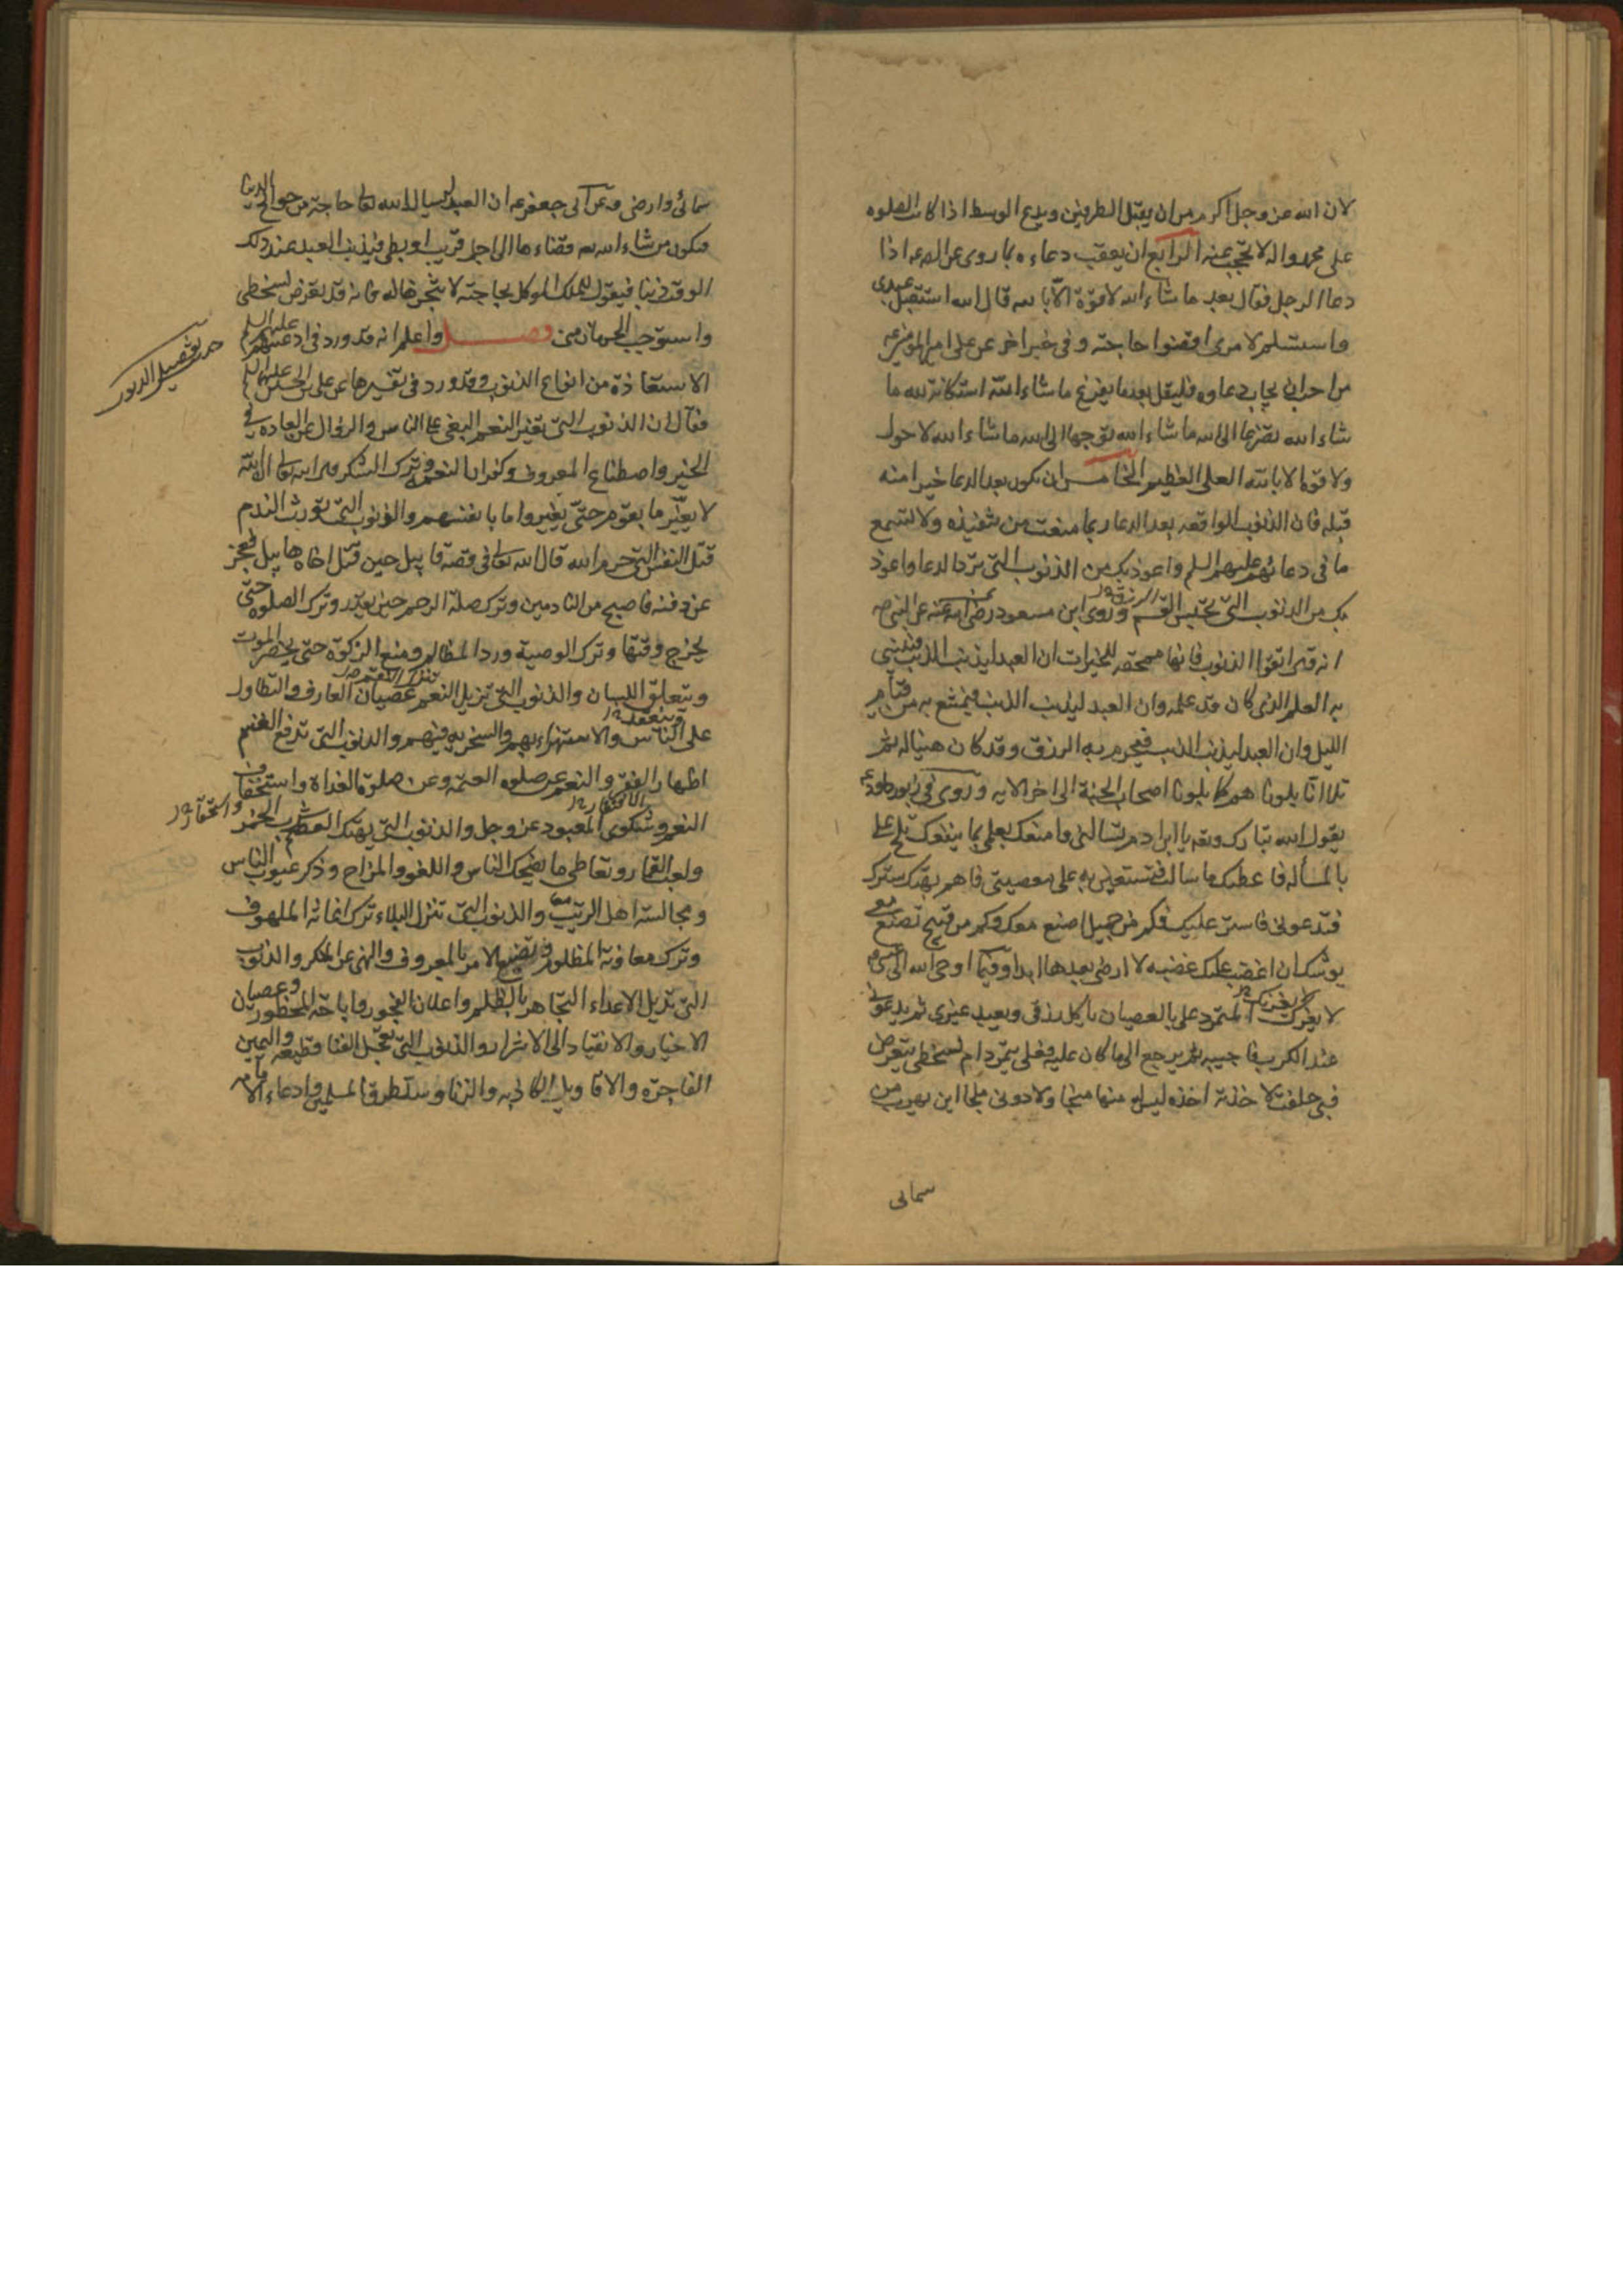 لان الله عز وجل اكرم من ان يقبل الطرفين ويدع الوسط اذا كانت الصلوه
على محمد واله لا تحجب عنه الرابع ان يعقب دعاءه بما روى عن الص ع اذا
دعا الرجل فقال بعد ما شاء الله لا قوة الا بالله قال الله استبتل عبدى
واستسلم لامرى اقضوا حاجته وفى خبر اخر عن على امير المؤمنين ع
من احب ان يجاب دعاوه فليقل بعد ما يفرغ ما شاء الله استكانة لله ما
شاء الله تضرعا الى الله ما شاء الله توجها الى الله ما شاء الله لا حول
ولا قوة الا بالله العلى العظيم الخامس ان يكون بعد الدعا خيرا منه
قبله فان الذنوب الواقعه بعد الدعا ربما منعت من تنفيذه ولا تسمع
ما فى دعائهم عليهم السلم واعوذ بك من الذنوب التى ترد الدعا واعوذ
بك من الذنوب التى تحبس القسم وروى ابن مسعود رضى الله عنه عن النبى ص
الرزق
انه قال اتقوا الذنوب فانها ممحقه للخيرات ان العبد ليذنب الذنب فينسى
به العلم الذى كان قد علمه وان العبد ليذنب الذنب فيمتنع به من قيام
الليل وان العبد ليذنب الذنب فيحرم به الرزق وقد كان هنيا له ثم
تلا انا بلوناهم كما بلونا اصحاب الجنة الى اخر الايه وروى فى زبور داود ع
يقول الله تبارك وتعه يا ابن ادم تسالنى وامنعك لعلمى بما ينفعك ثم تلح على
بالمسأله فاعطيك ما سالت فتستعين به على معصيتى فاهم بهتك سترك
فتدعونى فاستر عليك فكم من جميل اصنع معك وكم من قبيح تصنع معى
يوشك ان اغضب عليك غضبه لا ارضى بعدها ابدا وفيما اوحى الله الى
لا يغرنك المتمرد على بالعصيان ياكل رزقى ويعبد غيرى ثم يدعونى
لا يغرنك
عند الكرب فاجيبه ثم يرجع الى ما كان عليه فعلى يتمرد ام لسخطى يتعرض
فبى حلفت لاخذنه اخذه ليس له منها منجا ولا دونى ملجا اين يهرب من
سمائى
سمائى وارضى وعن ابى جعفر ع ان العبد ليسال الله تعا حاجة من حوائج الدنيا
فيكون من شان الله قضاءها الى اجل قريب او بطى فيذنب العبد عند ذلك
الوقت ذنبا فيقول للملك الموكل بحاجته لا تنجزها له فانه قد تعرض لسخطى
واستوجب الحرمان منى فصل واعلم انه قد ورد فى ادعيتهم عليهم السلم
حد تفصيل الذنوب
الاستعاذة من انواع الذنوب وقد ورد فى تفسيرها عن على بن الحسين عليهم السلم
فقال ان الذنوب التى تغير النعم البغى على الناس والزوال عن العاده فى
الخير واصطناع المعروف وكفران النعم وترك الشكر قال الله تعالى ان الله
لا يغير ما بقوم حتى يغيروا ما بانفسهم والذنوب التى تورث الندم
قتل النفس التى حرم الله قال الله تعالى فى قصة قابيل حين قتل اخاه هابيل فعجز
عن دفنه فاصبح من النادمين وترك صلة الرحم حين يقدر وترك الصلوه حتى
يخرج وقتها وترك الوصية ورد المظالم ومنع الزكوة حتى يحضر الموت
وينغلق اللسان والذنوب التى تزيل النعم عصيان العارف والتطاول
تنزل النقم
وينعقد
على الناس والاستهزاء بهم والسخريه منهم والذنوب التى تدفع القسم
اظهار الفقر والنوم عن صلوه العتمه وعن صلوة الغداة واستخفاف
الافتقار
النعم وشكوى المعبود عز وجل والذنوب التى يهتك العصم شرب الخمر
واستحقار
ولعب القمار وتعاطى ما يضحك الناس واللغو والمزاح وذكر عيوب الناس
ومجالسة اهل الريب والذنوب التى تنزل البلاء ترك اغاثة الملهوف
وترك معاونة المظلوم وتضييع الامر بالمعروف والنهى عن المنكر والذنوب
التى تديل الاعداء التجاهر بالظلم واعلان الفجور واباحة المحظور وعصيان
الاخيار والانقياد الى الاشرار والذنوب التى تعجل الفنا قطيعه واليمين
الفاجرة والاقاويل الكاذبه والزنا وسد طرق المسلمين وادعاء الامامه